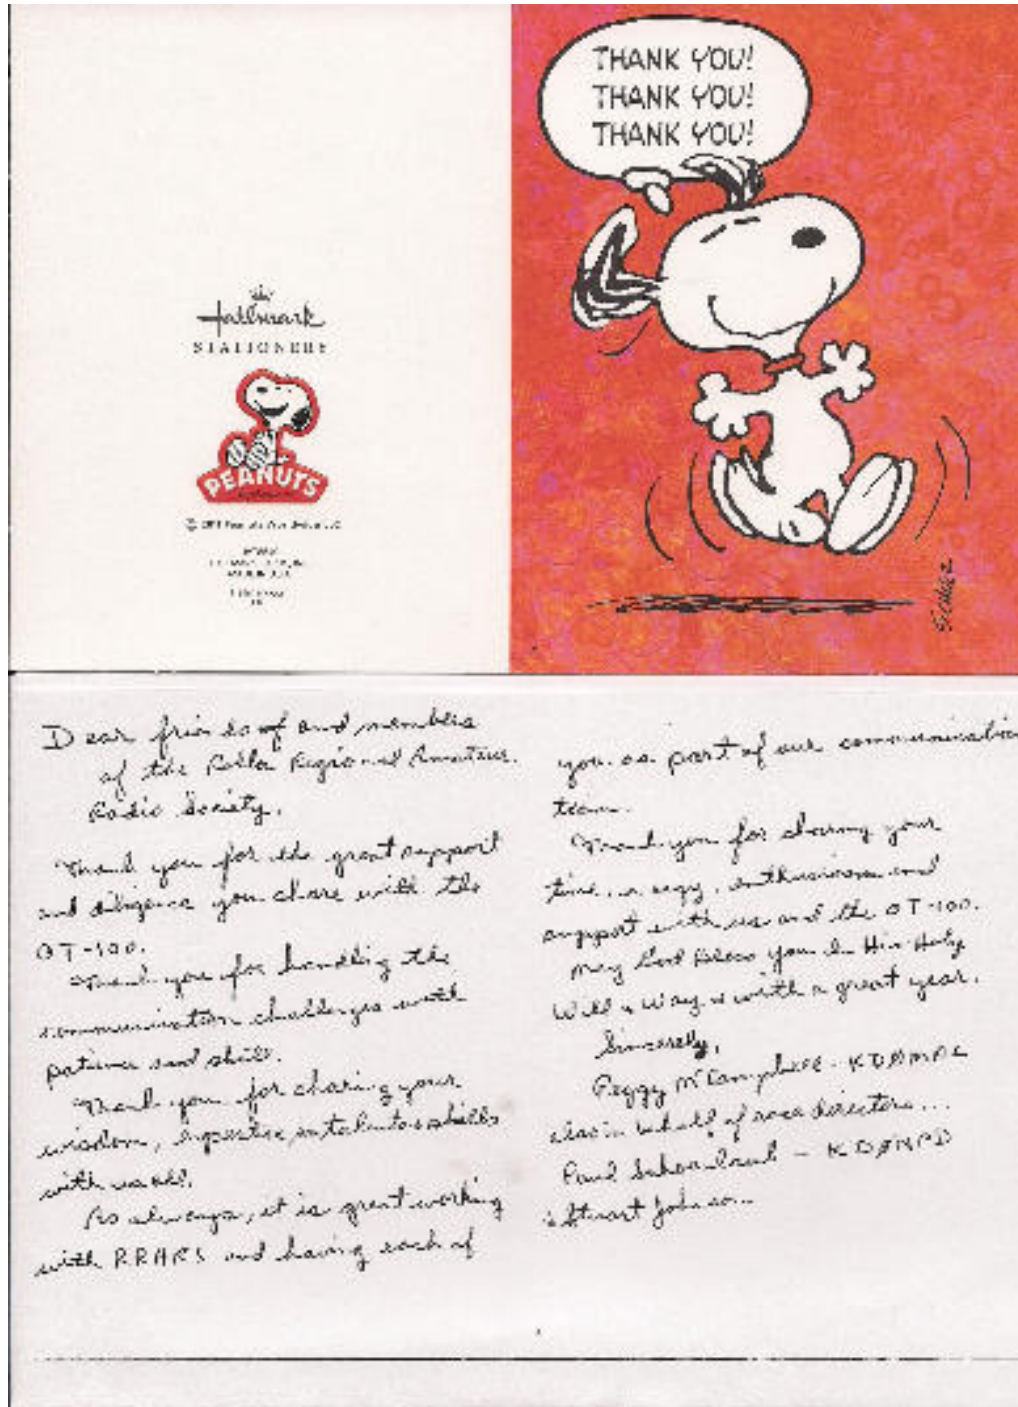 Hallmark
STATIONERY
PEANUTS
THANK YOU!
THANK YOU!
THANK YOU!
Schulz
Dear friends of and members
of the Rolla Regional Amateur
Radio Society,
Thank you for the great support
and diligence you share with the
OT-100.
Thank you for handling the
communication challenges with
patience and skill.
Thank you for sharing your
wisdom, expertise, talents & skills
with us all.
As always, it is great working
with RRARS and having each of
you as part of our communication
team.
Thank you for sharing your
time, energy, enthusiasm and
support with us and the OT-100.
May God Bless you In His Holy
Will & Way & with a great year.
Sincerely,
Peggy McCampbell -
also in behalf of race directors...
Paul - KDØNPD
& Stuart Johnson...